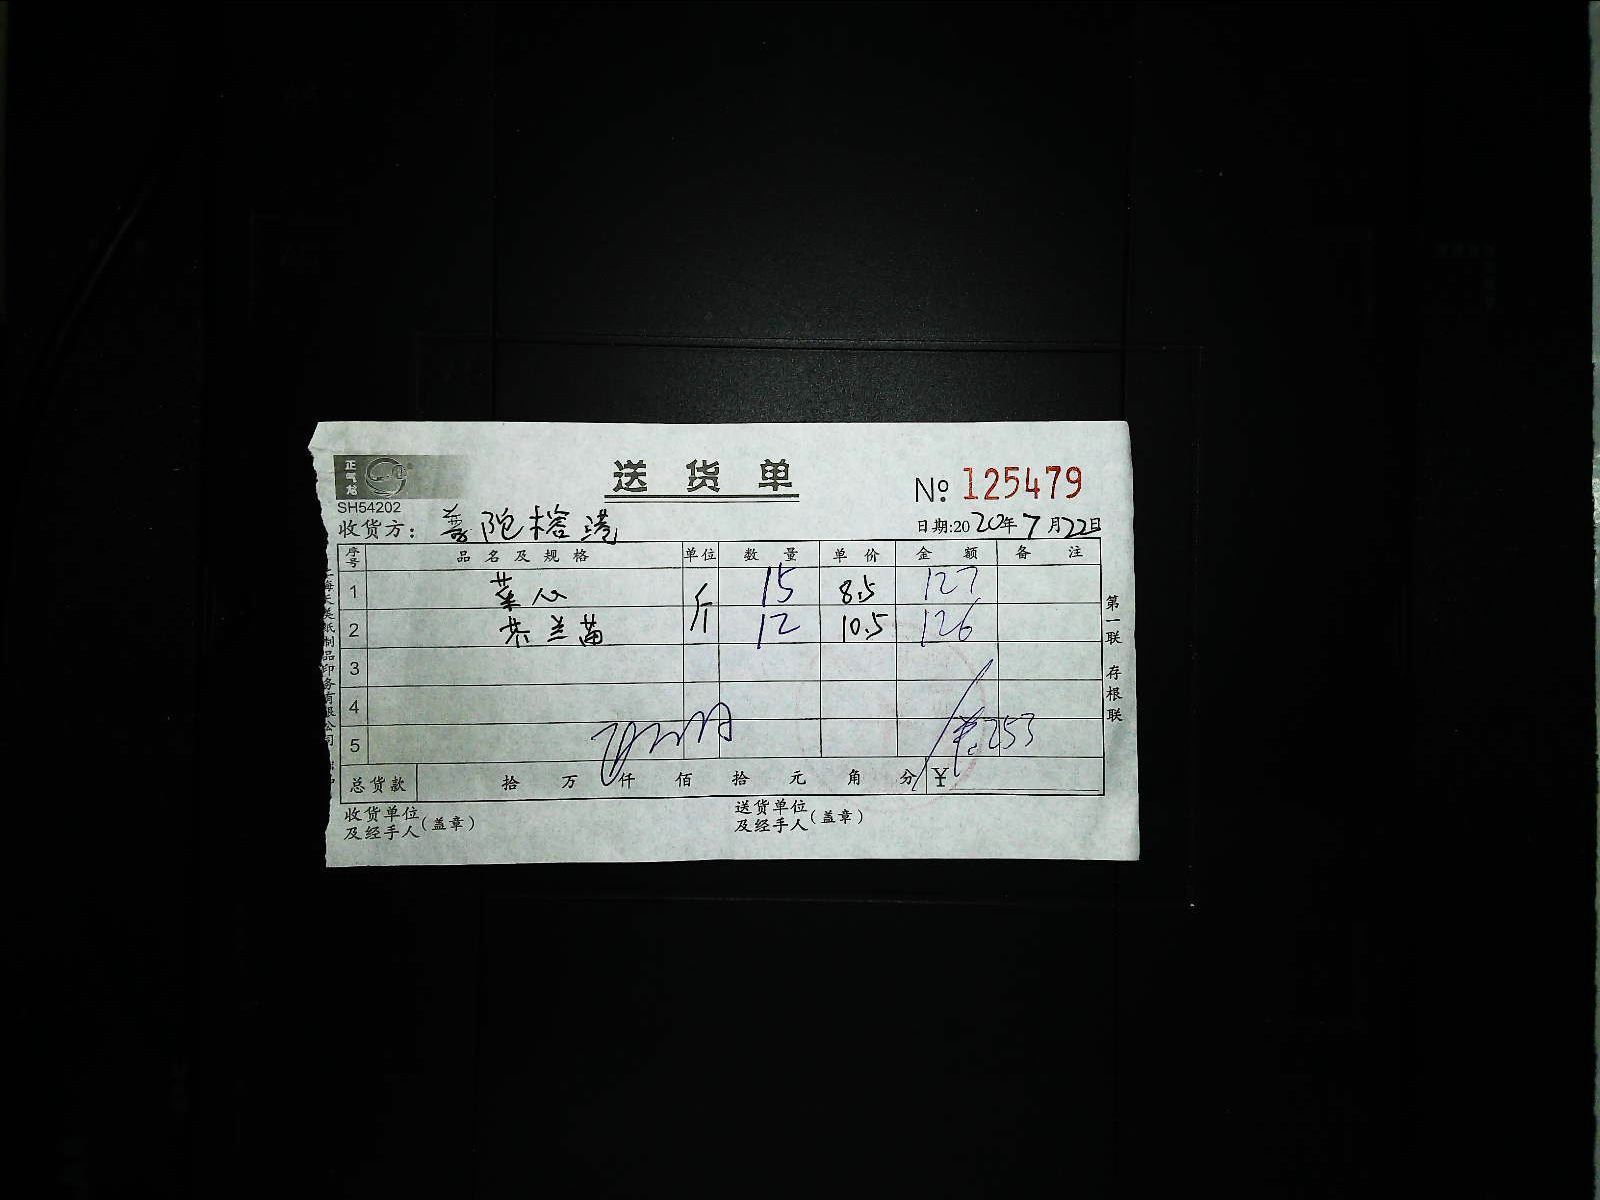 正气龙
送货单
№ 125479
SH54202
收货方：普陀榕港
日期:2020年7月22日
序号 品名及规格 单位 数量 单价 金额 备注
1 菜心 斤 15 8.5 127
2 芥兰苗 12 10.5 126
3
4
5
¥:253
总货款 拾 万 仟 佰 拾 元 角 分 ¥
收货单位及经手人(盖章)
送货单位及经手人(盖章)
第一联 存根联